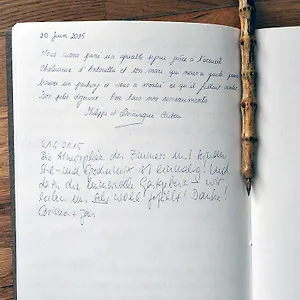 30 Juin 2015
Nous avons passé un agréable séjour grâce à l'accueil
chaleureux d'Antonella et son mari qui nous a guidé pour
trouver un parking et nous a montré ce qu'il fallait visiter
Bon petit déjeuner. Avec tous nos remerciements.
Philippe et Dominique
2015
Die Atmosphäre des Zimmers mit seinem
Stil- und ist einmalig! Und
dazu die Gastgeberin - wir
haben uns sehr wohl gefühlt! Danke!
Jan